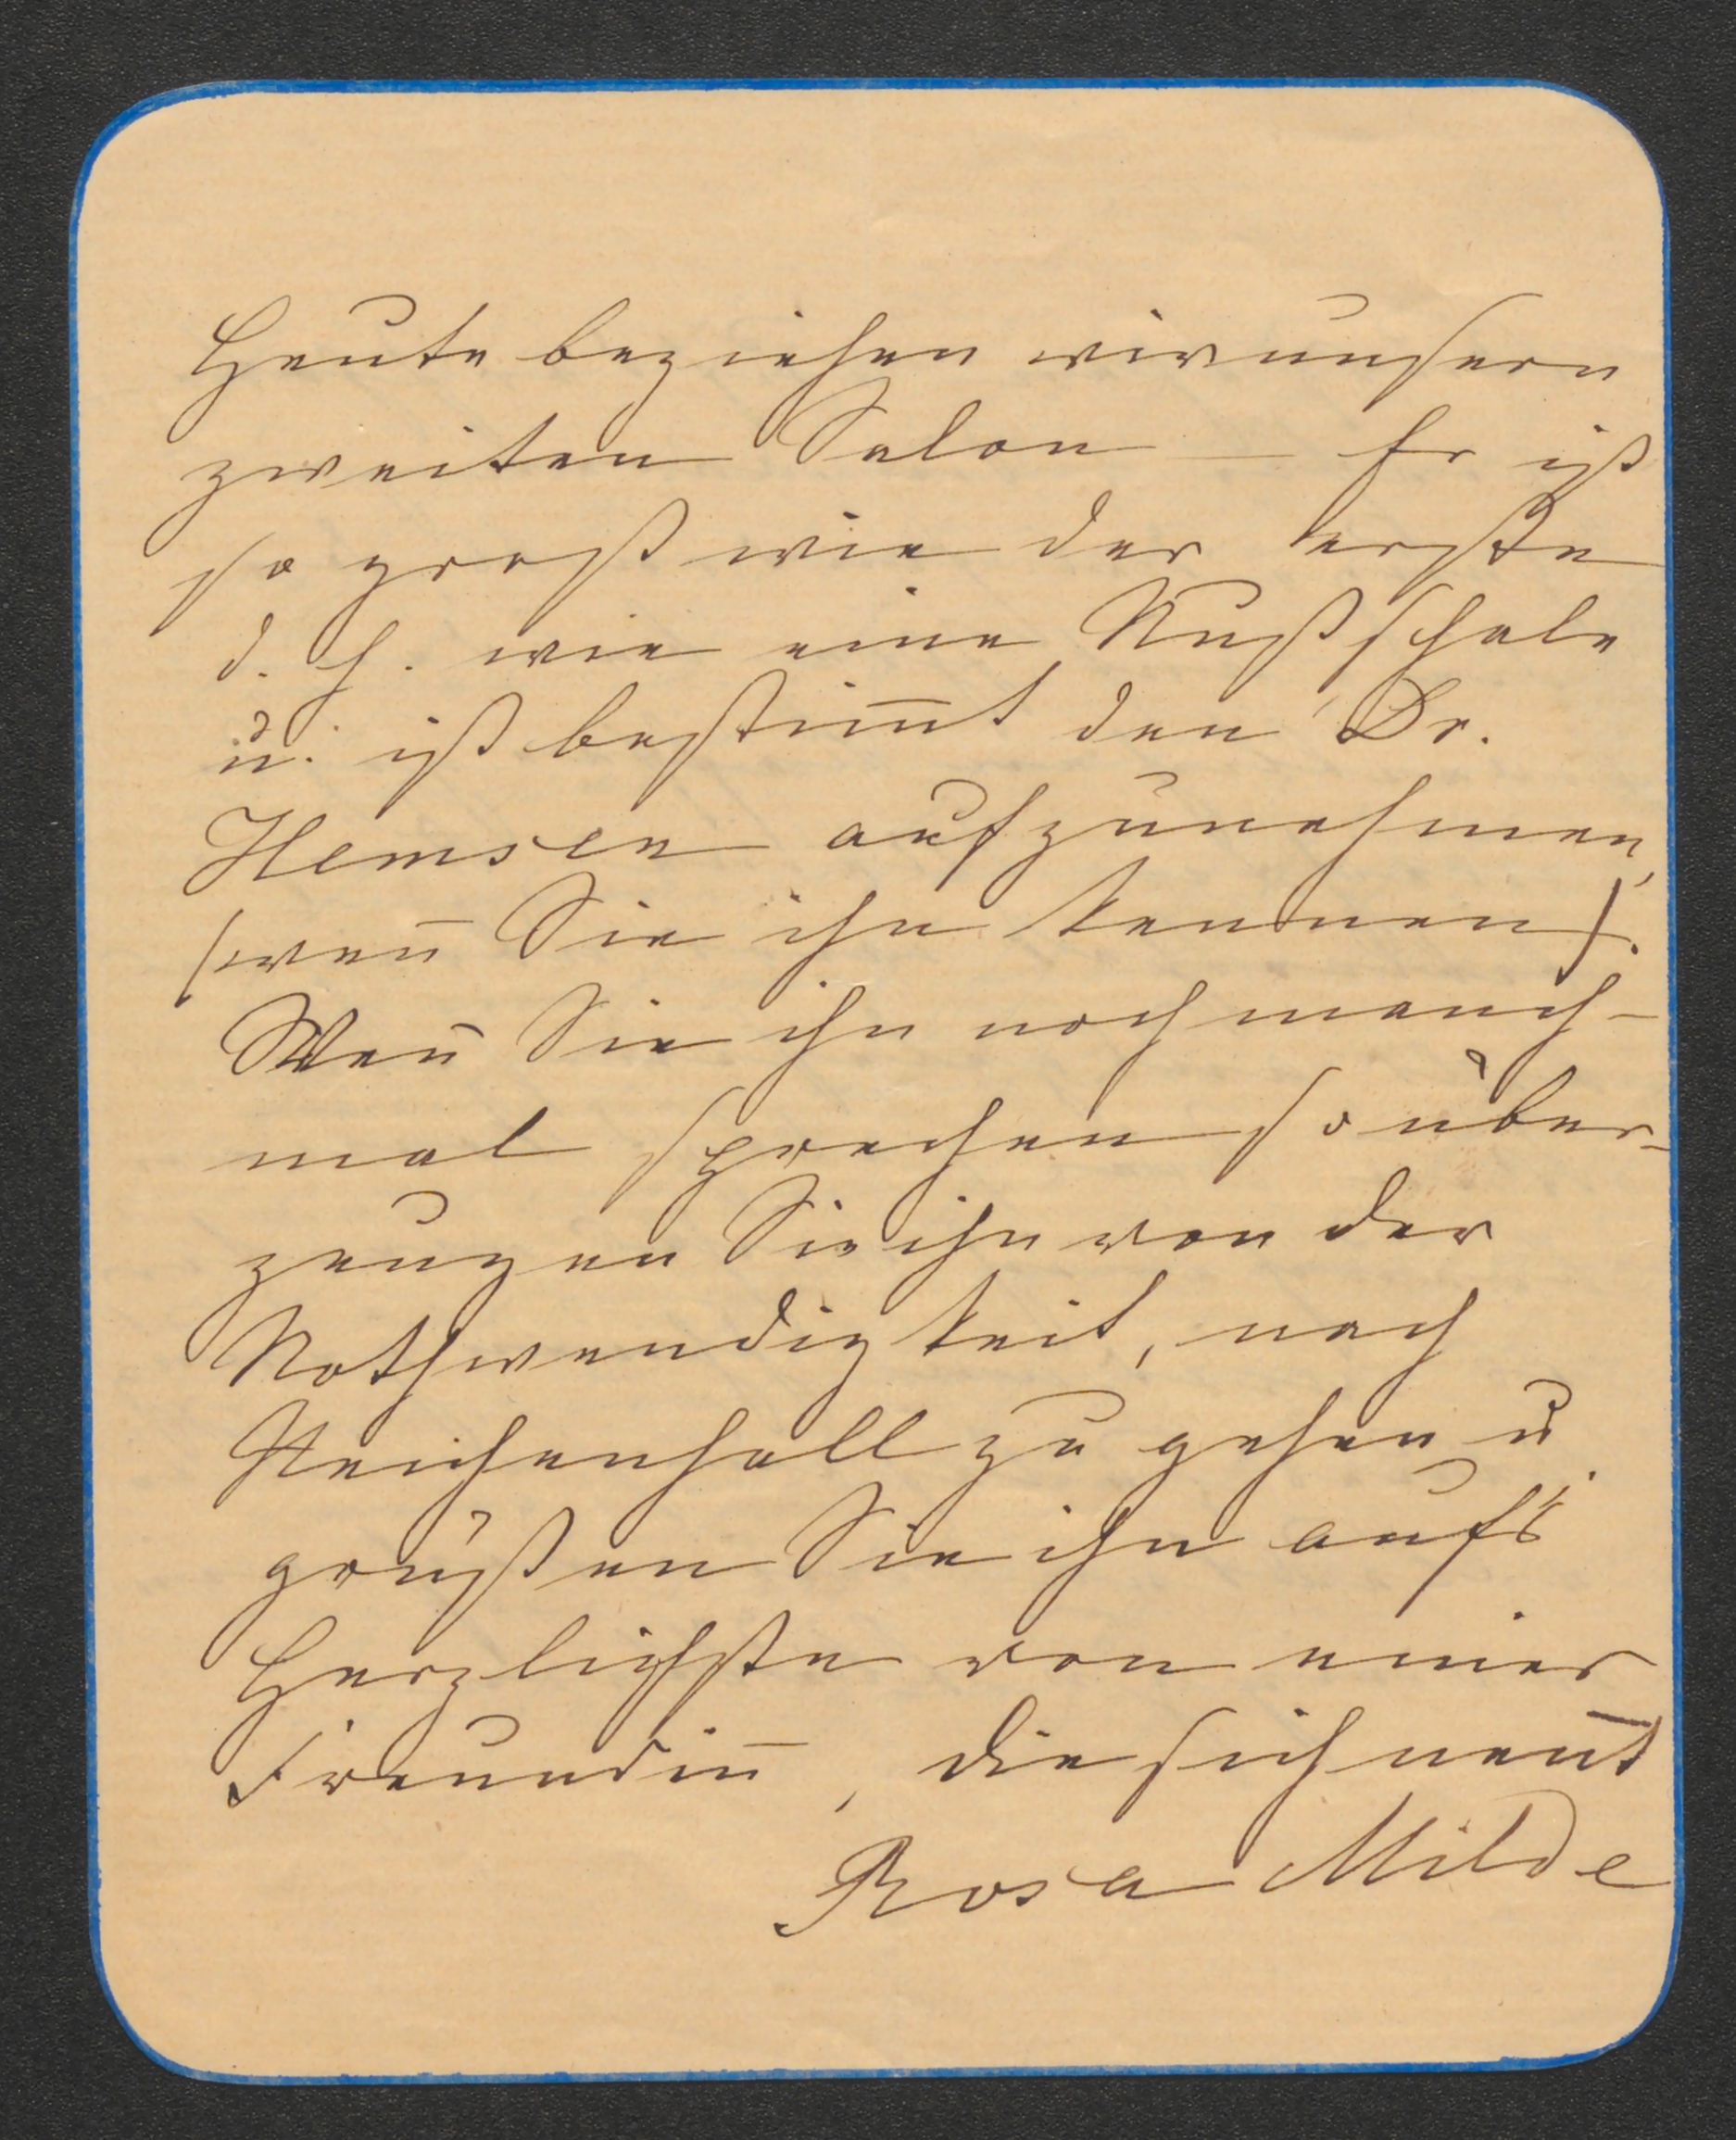 Heute beziehen wir unsern
zweiten Salon — Er ist
so groß wie der erste
d. h. wie eine Nußschale
u. ist bestim̅t den Dr.
Hemsen aufzunehmen,
(wen̅ Sie ihn kennen).
Wen̅ Sie ihn noch manch-
mal sprechen so über-
zeugen Sie ihn von der
Nothwendigkeit, nach
Reichenhall zu gehen u.
grüßen Sie ihn auf's
Herzlichste von einer
Freundin̅, die sich nen̅t
Rosa Milde